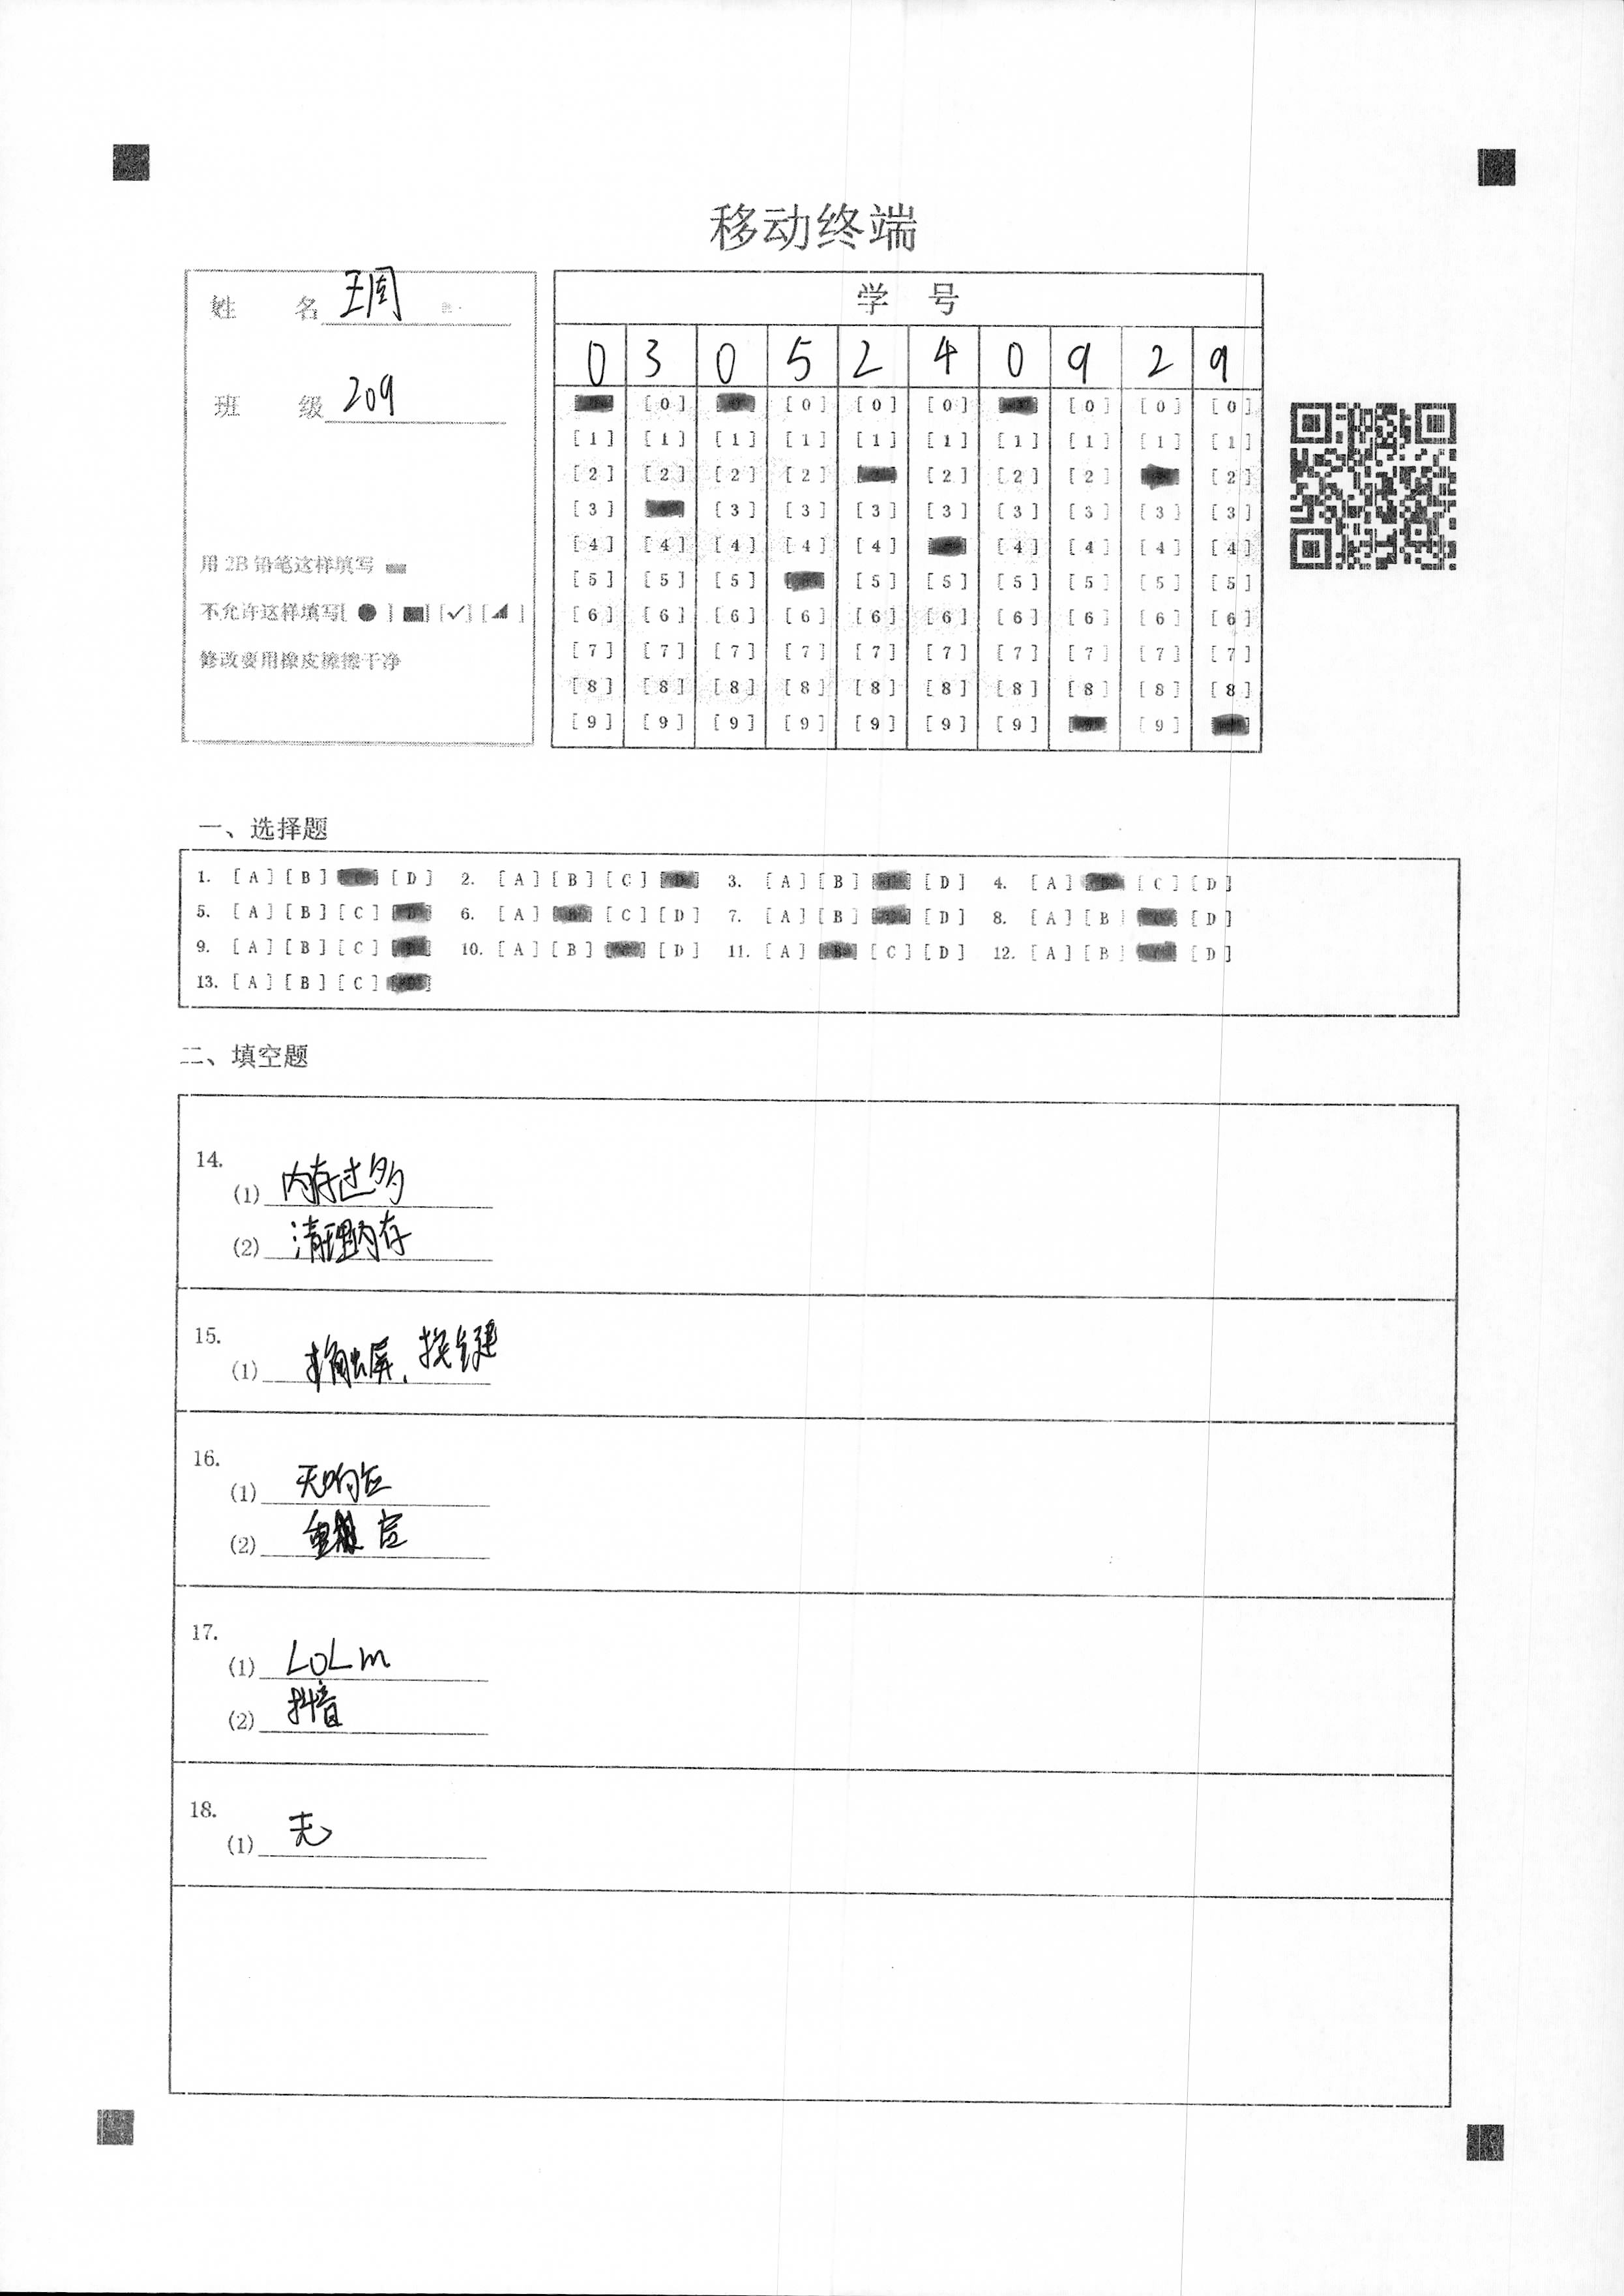 移动终端
姓 名 王周
班 级 209
用 2B 铅笔这样填写
不允许这样填写[ ● ] [■] [✓] [◢ ]
修改要用橡皮擦擦干净
学 号
0 3 0 5 2 4 0 9 2 9
[0] [0] [0] [0] [0] [0] [0]
[1] [1] [1] [1] [1] [1] [1] [1] [1] [1]
[2] [2] [2] [2] [2] [2] [2] [2]
[3] [3] [3] [3] [3] [3] [3] [3] [3]
[4] [4] [4] [4] [4] [4] [4] [4] [4]
[5] [5] [5] [5] [5] [5] [5] [5] [5]
[6] [6] [6] [6] [6] [6] [6] [6] [6] [6]
[7] [7] [7] [7] [7] [7] [7] [7] [7] [7]
[8] [8] [8] [8] [8] [8] [8] [8] [8] [8]
[9] [9] [9] [9] [9] [9] [9] [9]
一、选择题
1. [A] [B] [D] 2. [A] [B] [C] 3. [A] [B] [D] 4. [A] [C] [D]
5. [A] [B] [C] 6. [A] [C] [D] 7. [A] [B] [D] 8. [A] [B] [D]
9. [A] [B] [C] 10. [A] [B] [D] 11. [A] [C] [D] 12. [A] [B] [D]
13. [A] [B] [C]
二、填空题
14.
(1) 内存过多
(2) 清理内存
15.
(1) 触屏、按键
16.
(1) 无响应
(2)
17.
(1) LOLm
(2) 抖音
18.
(1) 无